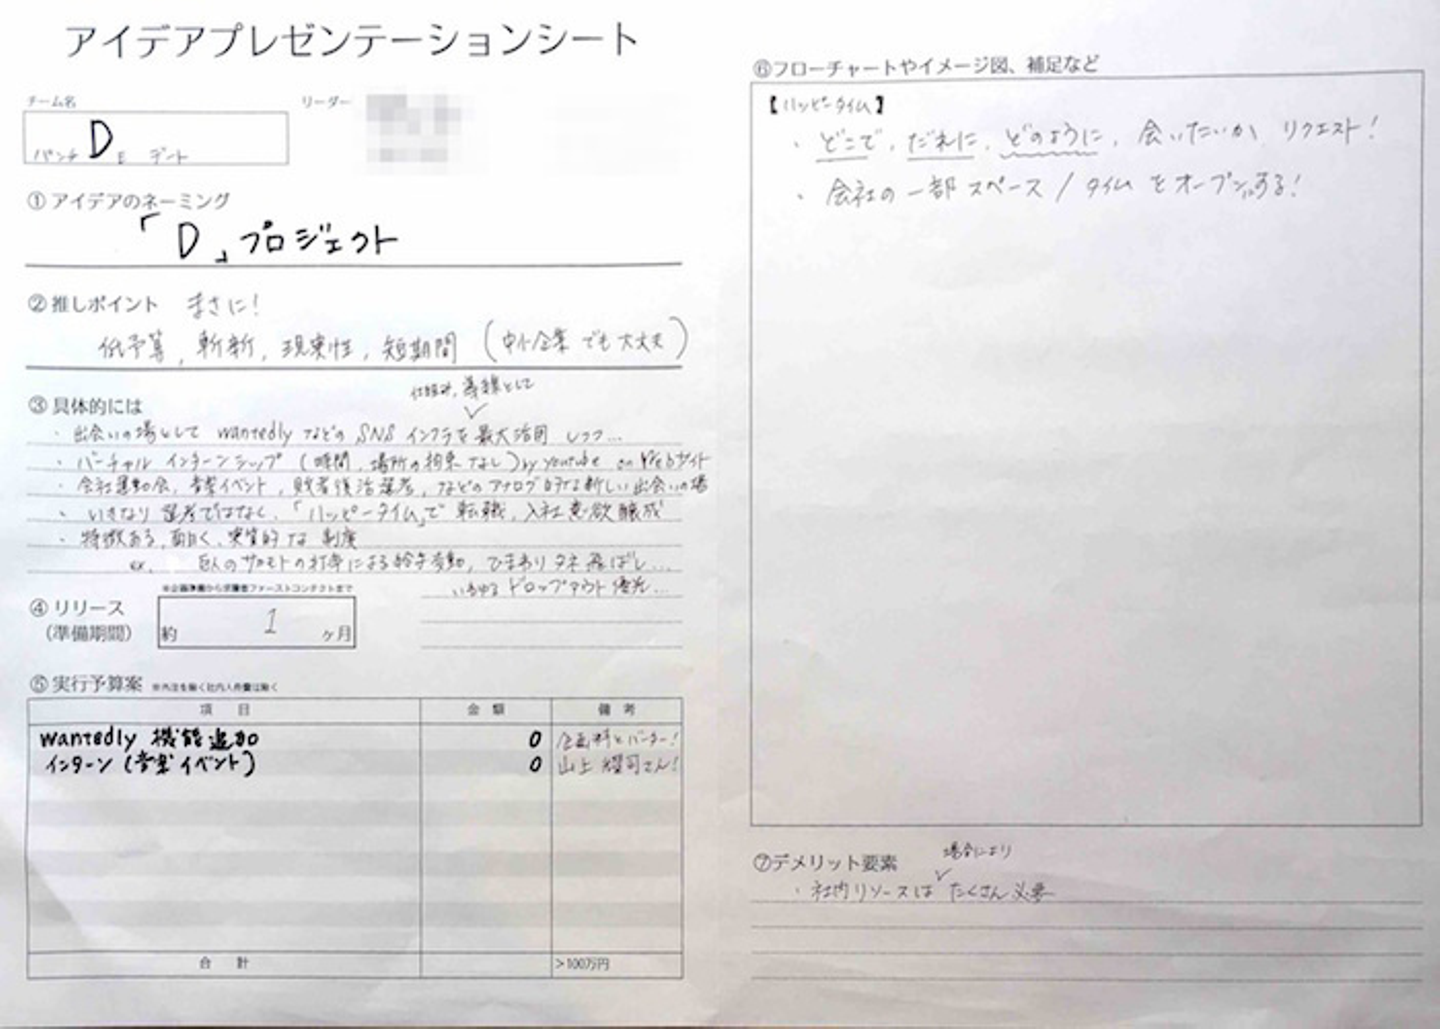 アイデアプレゼンテーションシート
チーム名
リーダー
パンチ D E デート
①アイデアのネーミング
「D」プロジェクト
②推しポイント まさに!
低予算, 斬新, 現実性, 短期間 (中小企業でも大丈夫)
③具体的には
仕組み, 導線として
・出会いの場として wantedly などの SNS インフラを 最大活用 しつつ...
・バーチャル インターンシップ (時間, 場所の拘束なし) by youtube on Webサイト
・会社運動会, 音楽イベント, 敗者復活選考, などのアナログ的な新しい出会いの場
・いきなり選考ではなく, 「ハッピータイム」で 転職, 入社意欲醸成
・特徴ある, 面白く, 実質的な 制度
ex. 巨人のサカモトの打率による給与変動, ひまわりタネ飛ばし...
いわゆる ドロップアウト 優先...
※企画準備から求職者ファーストコンタクトまで
④リリース
(準備期間)
約 1 ヶ月
⑤実行予算案 ※外注を除く社内人件費は除く
項目 金額 備考
wantedly 機能追加 0 企画料とバーター!
インターン (音楽イベント) 0 山上 さん!
合計 >100万円
⑥フローチャートやイメージ図、補足など
【ハッピータイム】
・どこで, だれに, どのように, 会いたいか, リクエスト!
・会社の一部スペース / タイムをオープンにする!
⑦デメリット要素
場合により
・社内リソースは たくさん必要